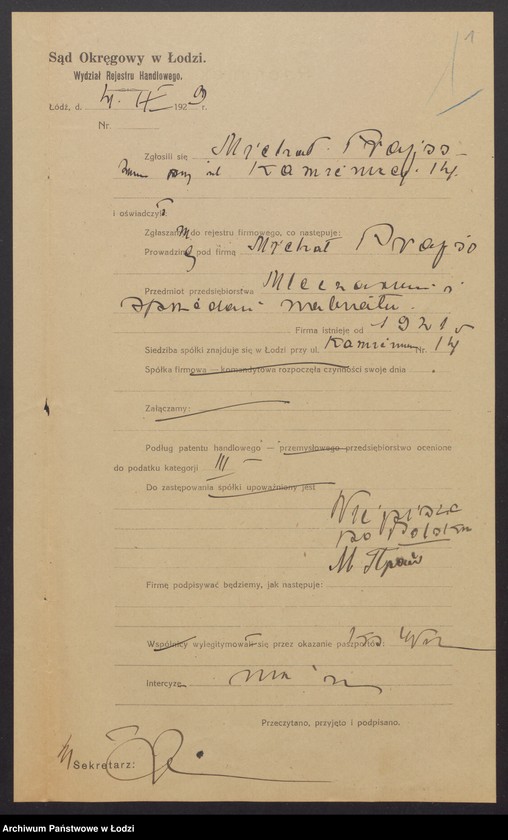 1
Sąd Okręgowy w Łodzi.
Wydział Rejestru Handlowego.
Łódź, d. 4. IX 1929 r.
Nr.
Zgłosili się Michał
zam przy ul Kamiennej 14.
i oświadczył:
Zgłaszam do rejestru firmowego, co następuje:
Prowadzimy pod firmą Michał
Przedmiot przedsiębiorstwa
Firma istnieje od 1921 r
Siedziba spółki znajduje się w Łodzi przy ul. Kamienna Nr. 14
Spółka firmowa — komandytowa rozpoczęła czynności swoje dnia
Załączamy:
Podług patentu handlowego — przemysłowego przedsiębiorstwo ocenione
do podatku kategorji III
Do zastępowania spółki upoważniony jest
Nie pisze
po polsku
М Прайс
Firmę podpisywać będziemy, jak następuje:
Wspólnicy wylegitymowali się przez okazanie paszportów:
Intercyze ma
Przeczytano, przyjęto i podpisano.
Sekretarz:
Archiwum Państwowe w Łodzi